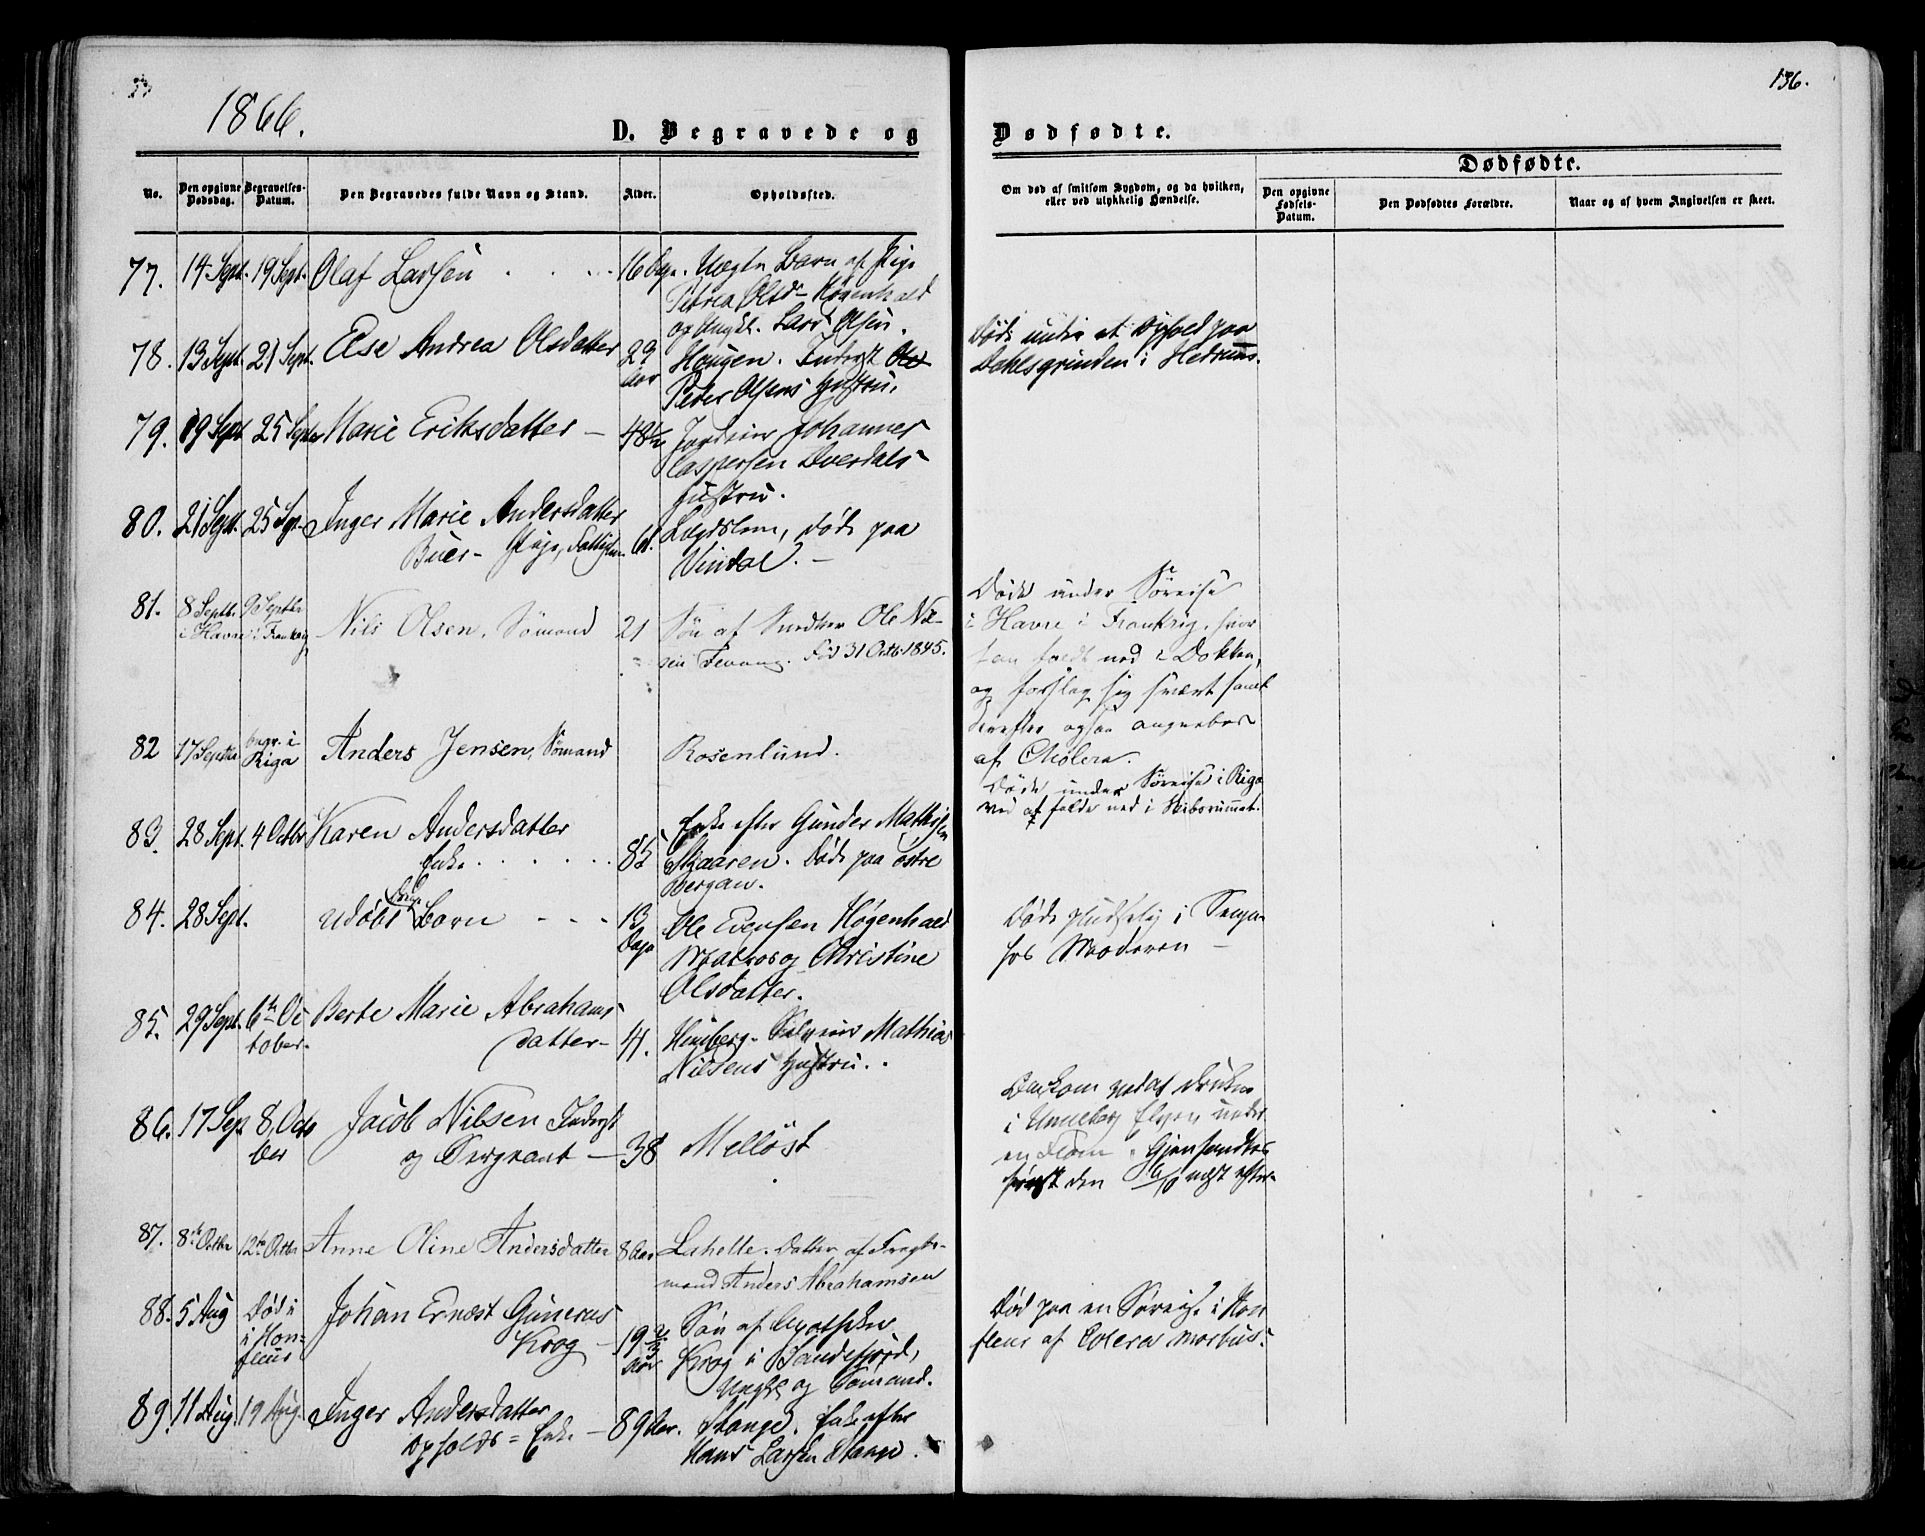 1866.
136.
D. Begravede og Dødfødte.
Dødfødte.
No.
Den opgivne Dødsdag.
Begravelses-Datum.
Den Begravedes fulde Navn og Stand.
Alder.
Opholdssted.
Om død af smitsom Sygdom, og da hvilken, eller ved ulykkelig Hændelse.
Den opgivne Fødsels-Datum.
Den Dødfødtes Forældre.
Naar og af hvem Angivelsen er skeet.
77. 14 Sept. 19 Sept. Olaf Larsen 16 Dge. Uægte Barn af Pige
Petrea Olsd. Høgenhald
og Ungkl. Lars Olsen.
78. 13 Sept. 21 Sept. Else Andrea Olsdatter 29 Aar Haugen. Inderst Ole
Peder Olsens Hustru.
Døde under et Ophold paa
Dahlsgrinden i Hedrum.
79. 19 Sept 25 Septbr Marie Eriksdatter — 48 Johannes
Caspersen Dverdals
Hustru.
80. 21 Sept. 25 Sep. Inger Marie Andersdatter
Buer - Pige, Fattiglem 61. Lægdslem, døde paa
Vindal. -
81. 8 Septbr. i Havre i Frankrig Nils Olsen, Sømand 21 Søn af Snedker Ole
Fevang. Fød 31 Octb. 1845.
Døde under Søreise
i Havre i Frankrig, hvor
han faldt ned i Dokken,
og forslog sig svært samt
derefter ogsaa angrebes
af Cholera.
82 17 Septbr begr. i Riga Anders Jensen, Sømand Rosenlund.
Døde under Søreise i Riga
ved at falde ned i Skibsrummet.
83. 28 Sept. 4 Octbr Karen Andersdatter
Enke 85 Enke efter Gunder Mathisen
Skjaaren. Døde paa østre
Bergan.
84. 28 Sept. udøbt Barn 13 Dage Ole Evensen Høgenhald
Matros og Christine
Olsdatter.
Døde pludselig i Sengen
hos Moderen —
85. 29 Sept. 6te October. Berte Marie Abrahams
datter - 41. Himberg. Selveier Mathias
Nilsens Hustru.
86. 17 Sep 8 October Jacob Nilsen Inderst
og Sergeant — 38 Melløst
Omkom ved at drukne
i Unneberg Elven under
en Flom. Gjenfandtes
først den 6/10 næst efter.
87. 8de Octbr 12te Octbr Anne Oline Andersdatter 8 Aar Lahelle. Datter af Fragte-
mand Anders Abrahamsen
88. 5 Aug Død i i Honfleur Johan Ernest Gunerus
Krog — 19 Aar Søn af Apotheker
Krog i Sandefjord,
Ungkl og Sømand.
Død paa en Søreise i Hon
fleur af Colera morbus.
89. 11 Aug. 19 Aug. Inger Andersdatter
Opholds = Enke — 89 Aar. Stange. Enke efter
Hans Larsen Stange.